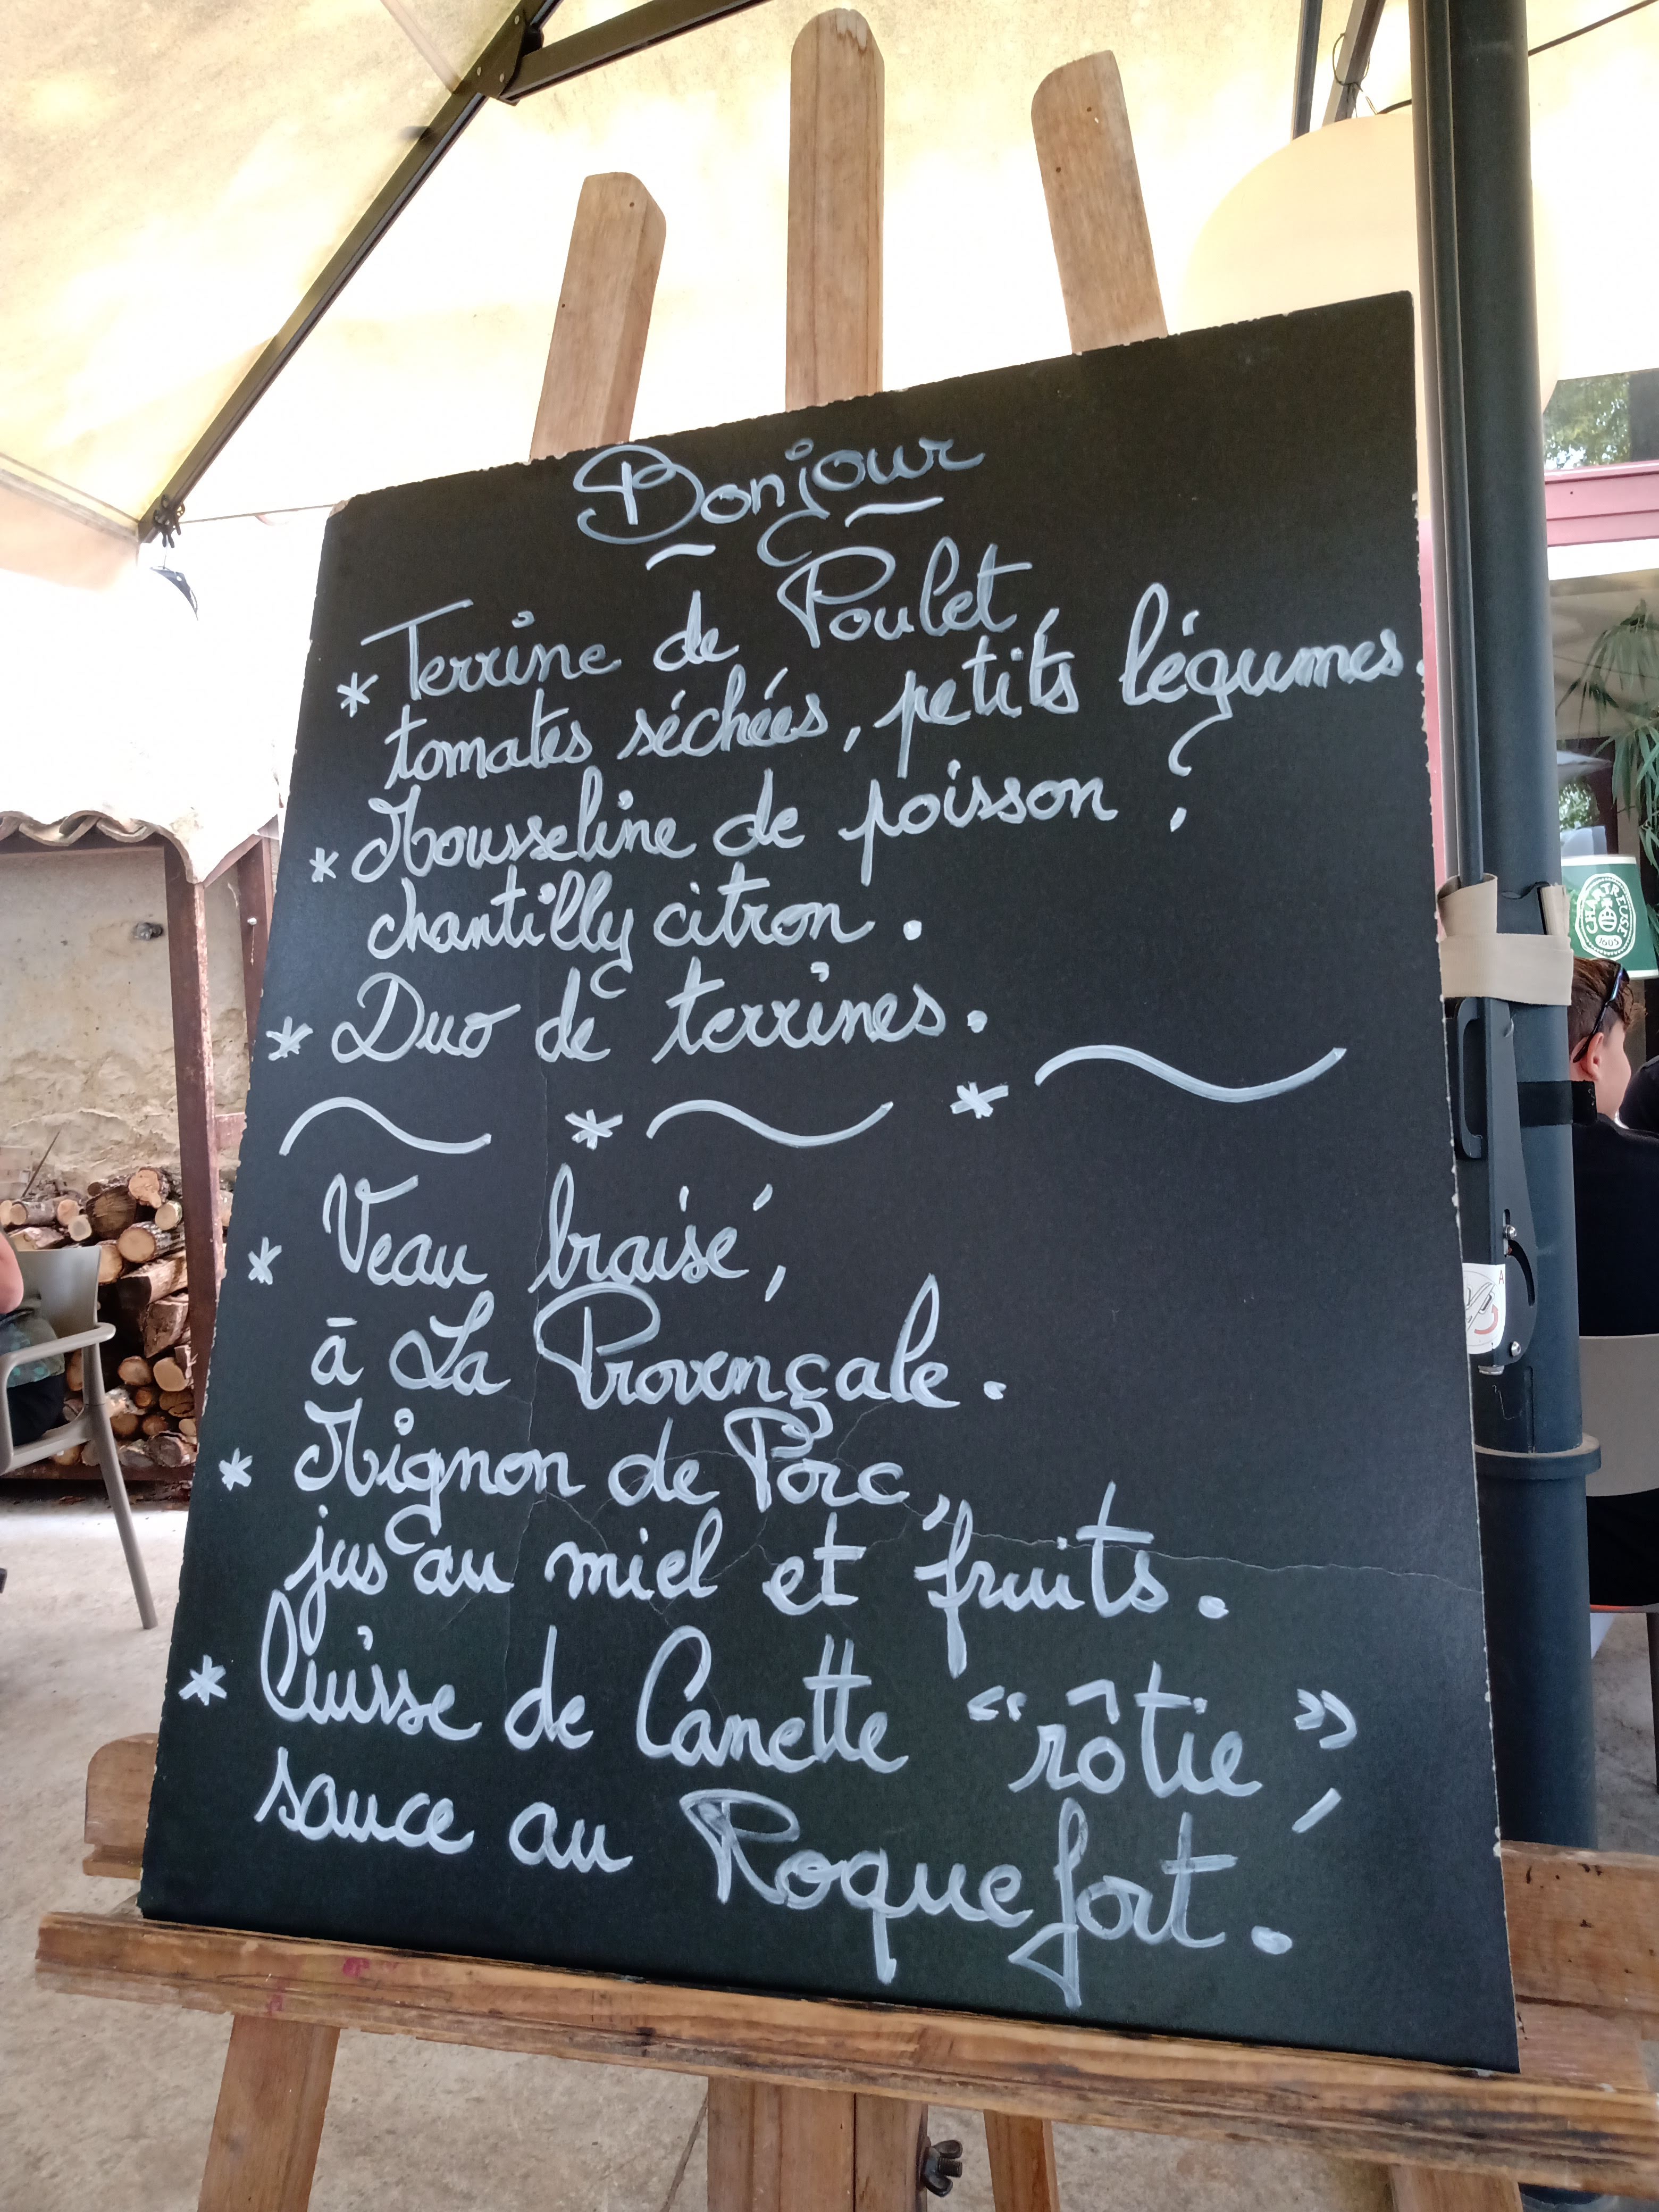 Bonjour
* Terrine de Poulet,
tomates séchées, petits légumes.
* Mousseline de poisson,
chantilly citron.
* Duo de terrines.
~ * ~ * ~
* Veau braisé,
à La Provençale.
* Mignon de Porc,
jus au miel et fruits.
* Cuisse de Canette "rôtie",
sauce au Roquefort.
CHARTREUSE
1605
A